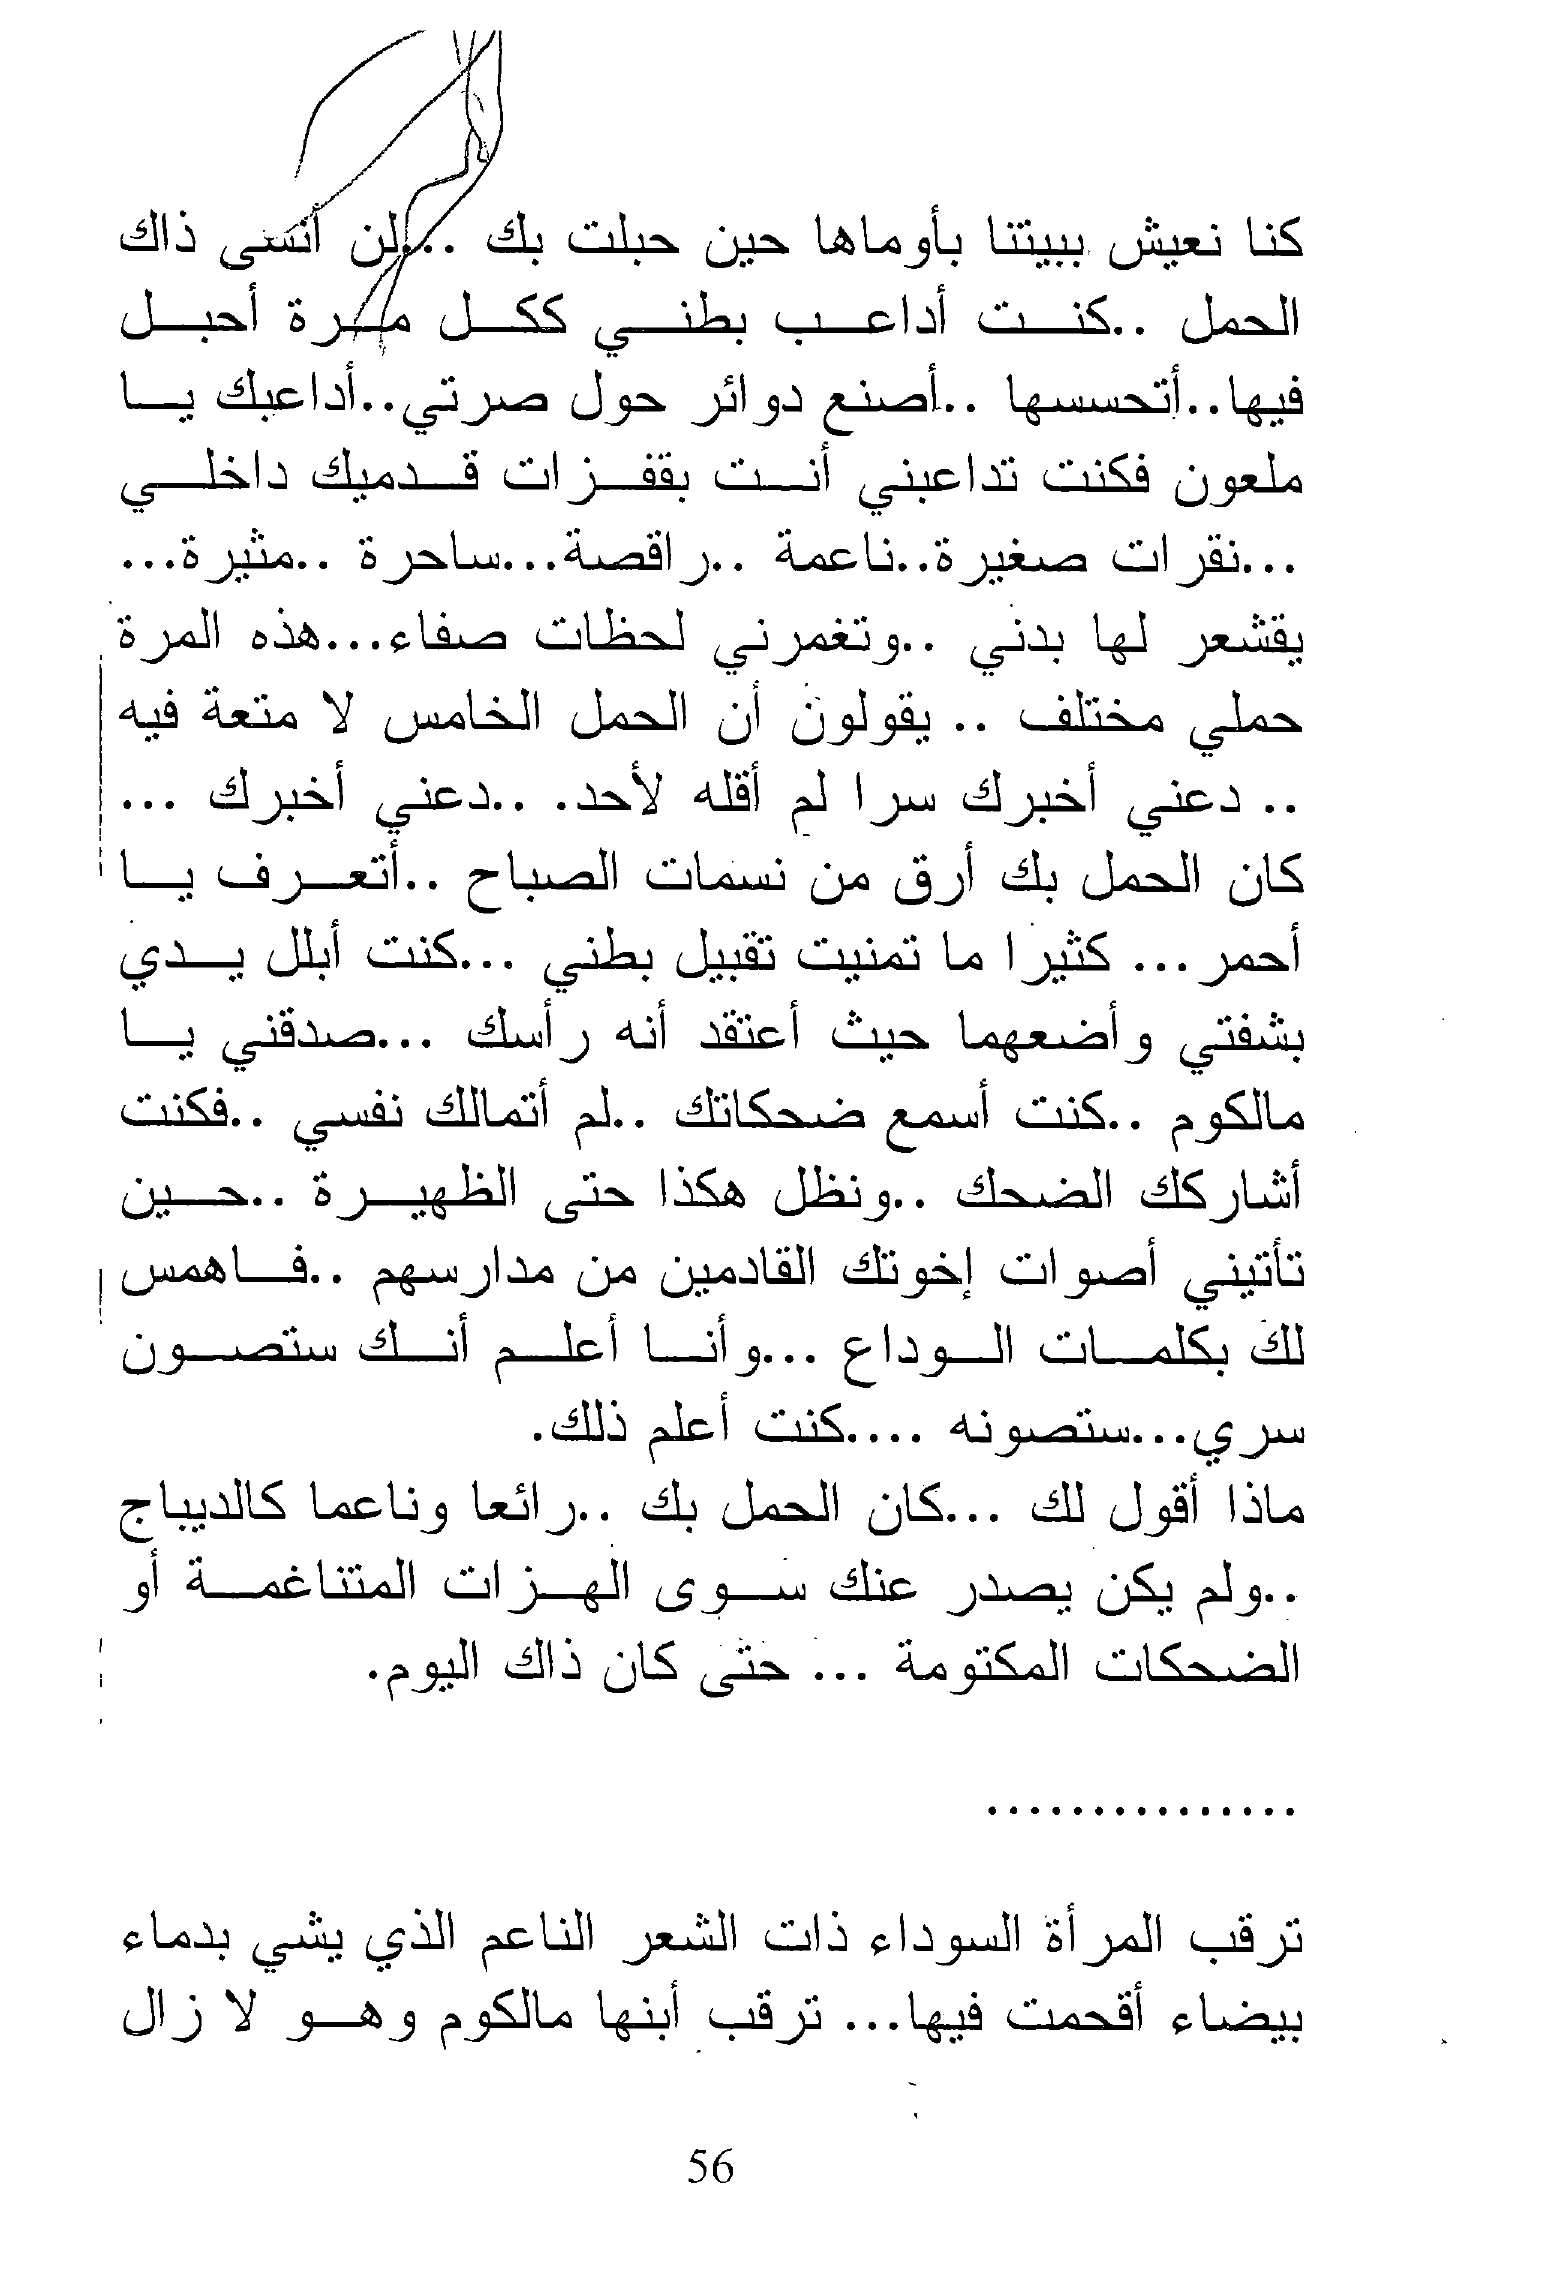 كنا نعيش ببيتنا بأوماها حين حبلت بك ...لن أنسى ذاك
الحمل ..كنت أداعب بطني ككل مرة أحبل
فيها..أتحسسها ..أصنع دوائر حول صرتي..أداعبك يا
ملعون فكنت تداعبني أنت بقفزات قدميك داخلي
...نقرات صغيرة..ناعمة ..راقصة...ساحرة ..مثيرة...
يقشعر لها بدني ..وتغمرني لحظات صفاء...هذه المرة
حملي مختلف .. يقولون أن الحمل الخامس لا متعة فيه
.. دعني أخبرك سرا لم أقله لأحد. ..دعني أخبرك ...
كان الحمل بك أرق من نسمات الصباح ..أتعرف يا
أحمر... كثيرا ما تمنيت تقبيل بطني ...كنت أبلل يدي
بشفتي وأضعهما حيث أعتقد أنه رأسك ...صدقني يا
مالكوم ..كنت أسمع ضحكاتك ..لم أتمالك نفسي ..فكنت
أشاركك الضحك ..ونظل هكذا حتى الظهيرة ..حين
تأتيني أصوات إخوتك القادمين من مدارسهم ..فاهمس
لك بكلمات الوداع ...وأنا أعلم أنك ستصون
سري...ستصونه ....كنت أعلم ذلك.
ماذا أقول لك ...كان الحمل بك ..رائعا وناعما كالديباج
..ولم يكن يصدر عنك سوى الهزات المتناغمة أو
الضحكات المكتومة ... حتى كان ذاك اليوم.
...............
ترقب المرأة السوداء ذات الشعر الناعم الذي يشي بدماء
بيضاء أقحمت فيها... ترقب أبنها مالكوم وهو لا زال
56